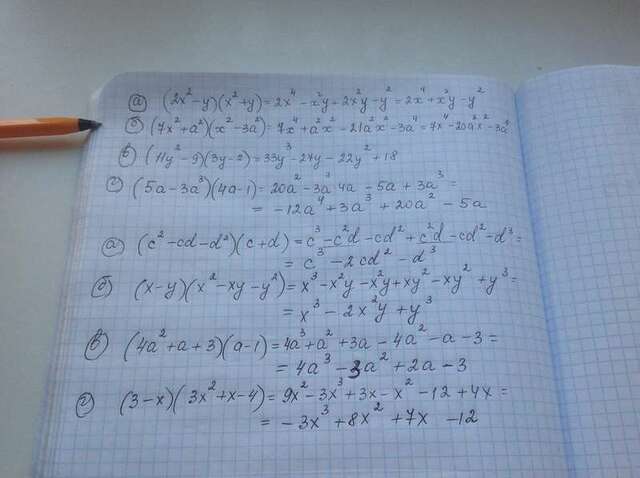 а) (2x²-y)(x²+y)=2x⁴-x²y+2x²y-y²=2x⁴+x²y-y²
б) (7x²+a²)(x²-3a²)=7x⁴+a²x²-21a²x²-3a⁴=7x⁴-20a²x²-3a⁴
в) (11y²-9)(3y-2)=33y³-27y-22y²+18
г) (5a-3a³)(4a-1)=20a²-3a³4a-5a+3a³=
=-12a⁴+3a³+20a²-5a
а) (c²-cd-d²)(c+d)=c³-c²d-cd²+c²d-cd²-d³=
=c³-2cd²-d³
б) (x-y)(x²-xy-y²)=x³-x²y-x²y+xy²-xy²+y³=
=x³-2x²y+y³
в) (4a²+a+3)(a-1)=4a³+a²+3a-4a²-a-3=
=4a³-3a²+2a-3
г) (3-x)(3x²+x-4)=9x²-3x³+3x-x²-12+4x=
=-3x³+8x²+7x-12